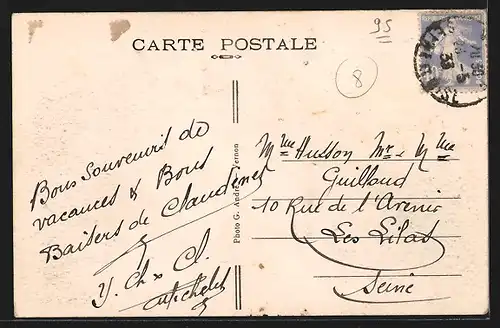 95
CARTE POSTALE
8
Bons Souvenirs de
vacances & Bons
Baisers de Claudine
Y. Ch x Cl.
Michelet
Photo G. André, Vernon
Mme Husson Mr & Mme
Guilland
10 Rue de l'Avenir
Les Lilas
Seine